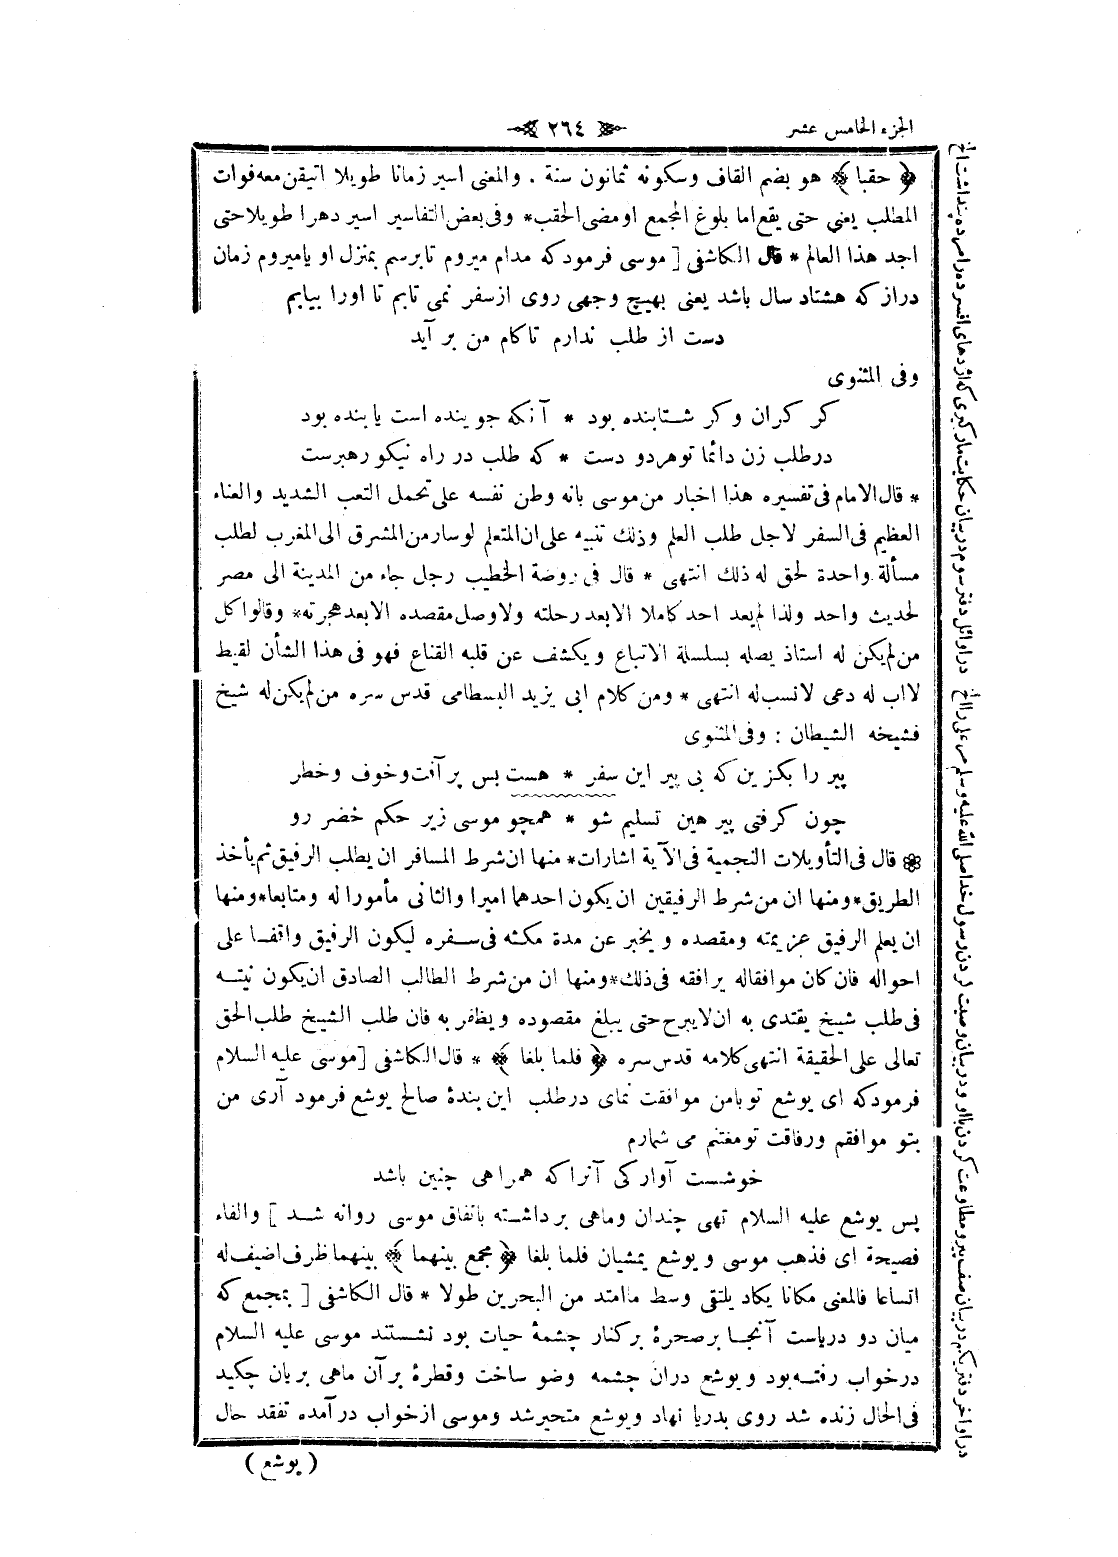 الجزء الخامس عشر
٢٦٤
﴿ حقبا ﴾ هو بضم القاف وسكونه ثمانون سنة . والمعنى اسير زمانا طويلا اتيقن معه فوات
المطلب يعني حتى يقع اما بلوغ المجمع او مضى الحقب * وفى بعض التفاسير اسير دهرا طويلا حتى
اجد هذا العالم * قال الكاشفى [ موسى فرمود كه مدام ميروم تا برسم بمنزل او يا ميروم زمان
دراز كه هشتاد سال باشد يعنى بهيچ وجهى روى از سفر نمى تابم تا اورا بيابم
دست از طلب ندارم تا كام من بر آيد
وفى المثنوى
كر كران وكر شتابنده بود * آنكه جوينده است يابنده بود
در طلب زن دائما تو هر دو دست * كه طلب در راه نيكو رهبرست
* قال الامام فى تفسيره هذا اخبار من موسى بانه وطن نفسه على تحمل التعب الشديد والعناء
العظيم فى السفر لاجل طلب العلم وذلك تنبيه على ان المتعلم لو سار من المشرق الى المغرب لطلب
مسألة واحدة لحق له ذلك انتهى * قال فى روضة الخطيب رجل جاء من المدينة الى مصر
لحديث واحد ولذا لم يعد احد كاملا الا بعد رحلته ولا وصل مقصده الا بعد هجرته * وقالوا كل
من لم يكن له استاذ يصله بسلسلة الاتباع ويكشف عن قلبه القناع فهو فى هذا الشأن لقيط
لا اب له دعى لا نسب له انتهى * ومن كلام ابى يزيد البسطامى قدس سره من لم يكن له شيخ
فشيخه الشيطان : وفى المثنوى
پير را بكزين كه بى پير اين سفر * هست بس پر آفت وخوف وخطر
چون كرفتى پير هين تسليم شو * همچو موسى زير حكم خضر رو
قال فى التأويلات النجمية فى الآية اشارات * منها ان شرط المسافر ان يطلب الرفيق ثم يأخذ
الطريق * ومنها ان من شرط الرفيقين ان يكون احدهما اميرا والثانى مأمورا له ومتابعا * ومنها
ان يعلم الرفيق عزيمته ومقصده ويخبر عن مدة مكثه فى سفره ليكون الرفيق واقفا على
احواله فان كان موافقاله يرافقه فى ذلك * ومنها ان من شرط الطالب الصادق ان يكون نيته
فى طلب شيخ يقتدى به ان لا يبرح حتى يبلغ مقصوده ويظفر به فان طلب الشيخ طلب الحق
تعالى على الحقيقة انتهى كلامه قدس سره ﴿ فلما بلغا ﴾ * قال الكاشفى [ موسى عليه السلام
فرمود كه اى يوشع تو با من موافقت نماى در طلب اين بندۀ صالح يوشع فرمود آرى من
بتو موافقم ورفاقت تو مغتنم مى شمارم
خوشست آوار كى آنرا كه همراهى چنين باشد
پس يوشع عليه السلام تهى چندان وماهى برداشته باتفاق موسى روانه شد ] والفاء
فصيحة اى فذهب موسى ويوشع يمشيان فلما بلغا ﴿ مجمع بينهما ﴾ بينهما ظرف اضيف له
اتساعا فالمعنى مكانا يكاد يلتقى وسط ما امتد من البحرين طولا * قال الكاشفى [ بمجمع كه
ميان دو درياست آنجا بر صخرۀ بركنار چشمۀ حيات بود نشستند موسى عليه السلام
در خواب رفته بود ويوشع دران چشمه وضو ساخت وقطرۀ بر آن ماهى بريان چكيد
فى الحال زنده شد روى بدريا نهاد ويوشع متحير شد وموسى از خواب در آمده تفقد حال
( يوشع )
در اوائل دفتر سوم در بيان حكايت مار كيرى كه اژدهاى افسرده را مرده پنداشت الخ
در اواخر دفتر يكم در بيان صفت پير ومطاوعت كردن با او ودر بيان وصيت كردن رسول خدا صلى الله عليه وسلم مر على را الخ